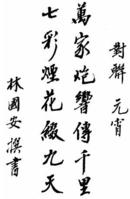 對聯 元宵
萬家炮響傳千里
七彩煙花綴九天
林國安 撰書